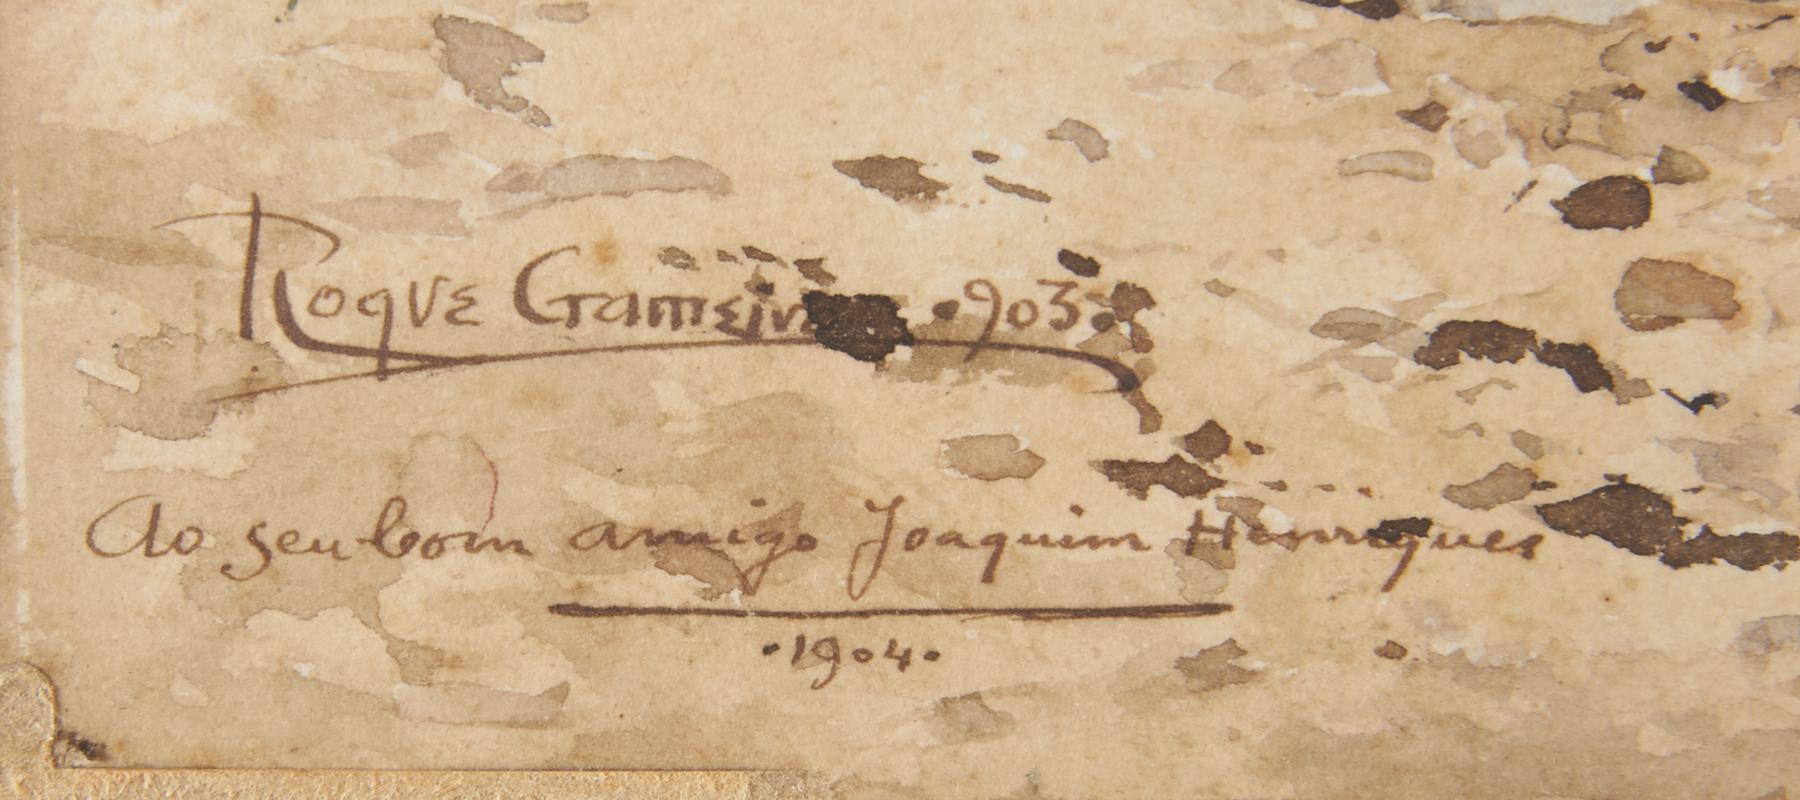 Roque Gameiro .903.
Ao seu bom amigo Joaquim Henriques
.1904.